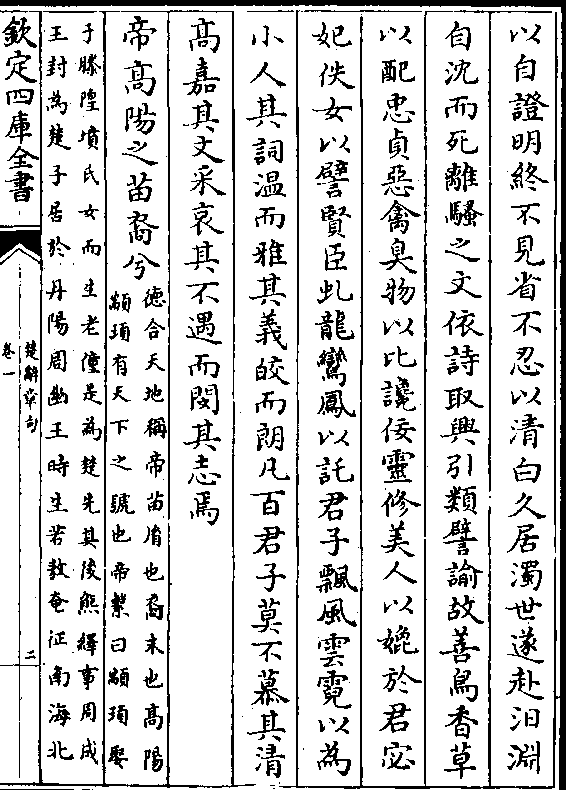 以自證明終不見省不忍以清白久居濁世遂赴汨淵
自沈而死離騷之文依詩取興引類譬諭故善鳥香草
以配忠貞惡禽臭物以比讒佞靈修美人以媲於君宓
妃佚女以譬賢臣虬龍鸞鳳以託君子飄風雲霓以為
小人其詞温而雅其義皎而朗凡百君子莫不慕其清
髙嘉其文采哀其不遇而閔其志焉
帝髙陽之苗裔兮
德合天地稱帝苗𦙍也裔末也髙陽
顓頊有天下之號也帝繫曰顓頊娶
于滕隍墳氏女而生老僮是為楚先其後熊繹事周成
王封為楚子居於丹陽周幽王時生若敖奄征南海北
欽定四庫全書
楚辭章句
卷一
二